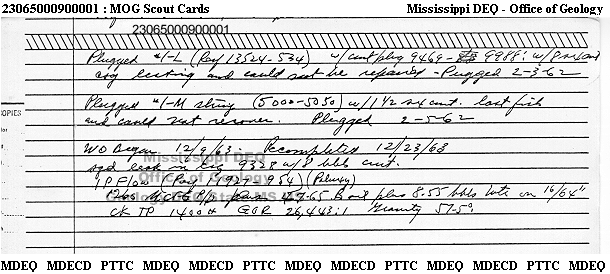 23065000900001 : MOG Scout Cards
Mississippi DEQ - Office of Geology
23065000900001
Plugged #1-L (Perf 13524-534) w/cmt plug 9469- 9988'. w/
csg leaking and could not be repaired - Plugged 2-3-62
Plugged #1-M string (5000-5050) w/1 1/2 sx cmt. lost fish
and could not recover. Plugged 2-5-62
OPIES
WO Began 12/9/63. Recompleted 12/23/63
sqd leak in csg 9328 w/8 bbls cmt.
Mississippi DEQ
Office of Geology
IPF Flow (Perf 9927-954) (Paluxy)
MCFGP/D 65 B cond plus 8.55 bbls wtr on 16/64"
CK TP 1400# GOR 26,443:1 Gravity 57.5°
MDEQ MDECD PTTC MDEQ MDECD PTTC MDEQ MDECD PTTC MDEQ MDECD PTTC MDEQ